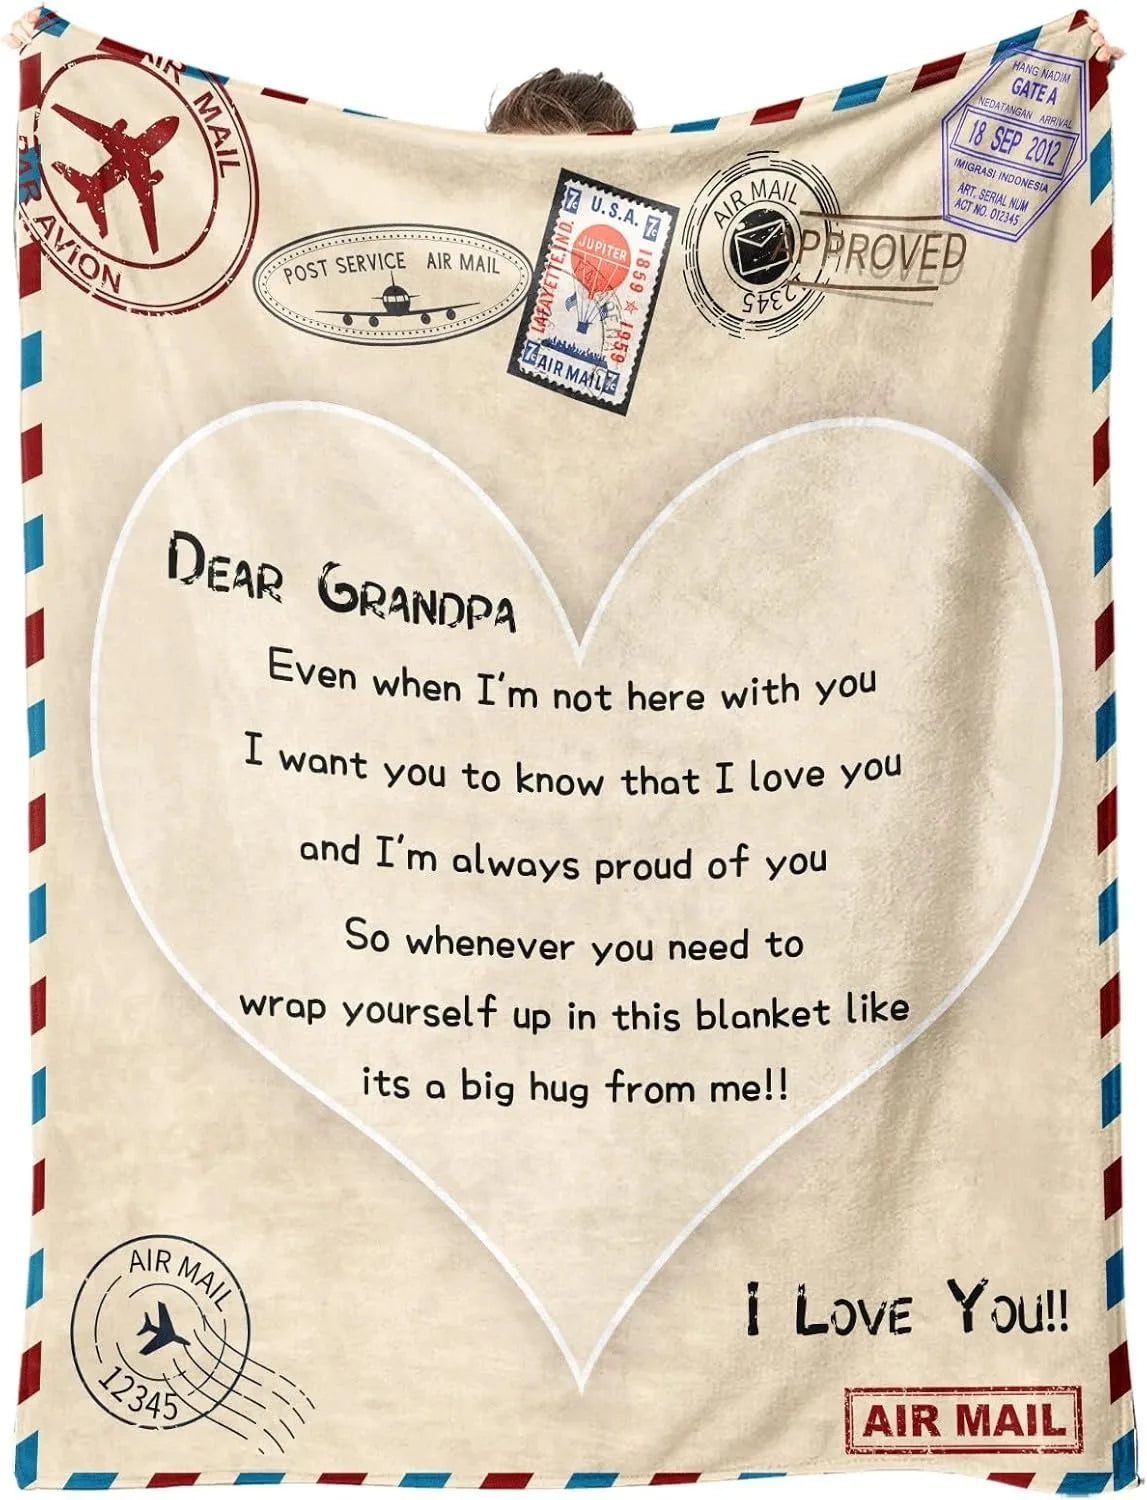 AIR MAIL
PAR AVION
POST SERVICE AIR MAIL
U.S.A.
7c
7c
JUPITER
LAFAYETTE, IND.
1859 ★ 1959
7c AIR MAIL 7c
AIR MAIL
12345
APPROVED
HANG NADIM
GATE A
NEDATANGAN ARRIVAL
18 SEP 2012
IMIGRASI INDONESIA
ART. SERIAL NUM
ACT NO. 012345
DEAR GRANDPA
Even when I'm not here with you
I want you to know that I love you
and I'm always proud of you
So whenever you need to
wrap yourself up in this blanket like
its a big hug from me!!
I LOVE YOU!!
AIR MAIL
12345
AIR MAIL